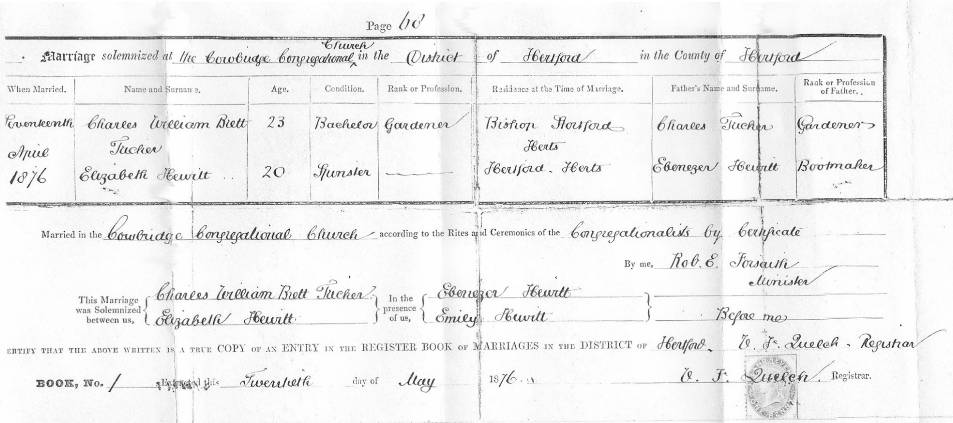 Page 68
Marriage solemnized at the Cowbridge Congregational Church in the District of Hertford in the County of Hertford
When Married. Name and Surname. Age. Condition. Rank or Profession. Residence at the Time of Marriage. Father's Name and Surname. Rank or Profession of Father.
Charles William Brett 23 Bachelor Gardener Bishop Stortford Charles Tucker Gardener
April Tucker Herts
1876 Elizabeth Hewitt 20 Spinster Hertford. Herts Ebenezer Hewitt Bootmaker
Married in the Cowbridge Congregational Church according to the Rites and Ceremonies of the Congregationalists by Certificate
By me, Rob. E. Forsaith
Minister
This Marriage was Solemnized between us, Charles William Brett Tucker In the presence of us, Ebenezer Hewitt
Elizabeth Hewitt Emily Hewitt Before me
ERTIFY THAT THE ABOVE WRITTEN IS A TRUE COPY OF AN ENTRY IN THE REGISTER BOOK OF MARRIAGES IN THE DISTRICT OF Hertford. Quelch. Registrar
BOOK, No. 1 this Twentieth day of May 1876. Quelch. Registrar.